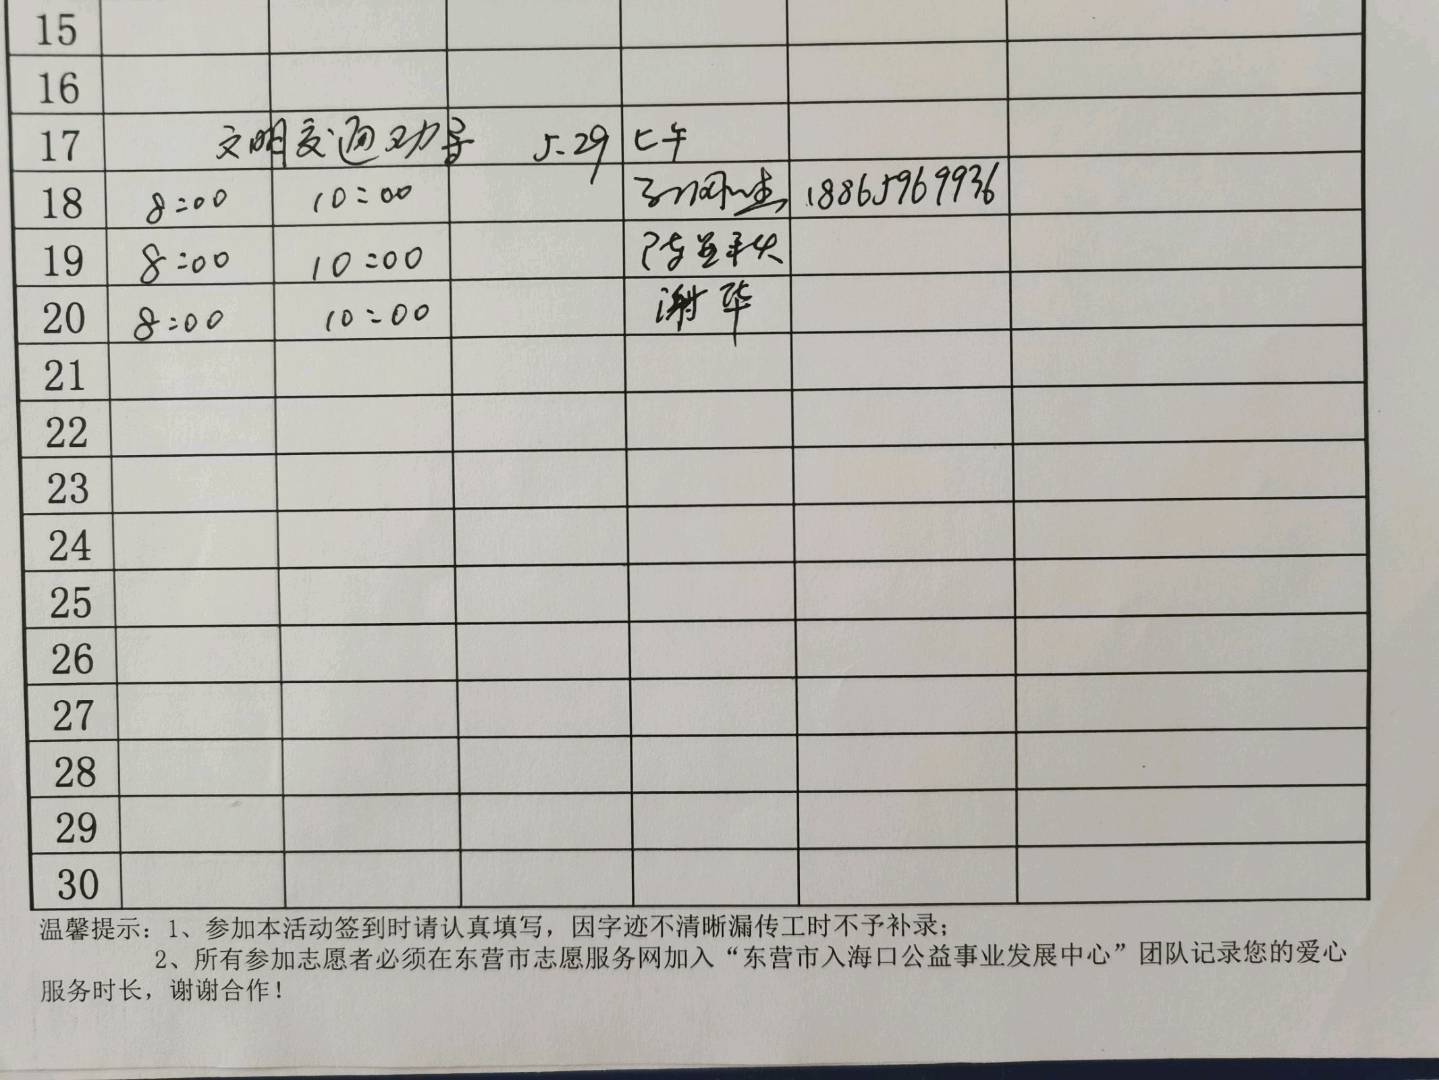 15
16
17 文明交通劝导 5.29 上午
18 8:00 10:00 18865969936
19 8:00 10:00
20 8:00 10:00 谢华
21
22
23
24
25
26
27
28
29
30
温馨提示：1、参加本活动签到时请认真填写，因字迹不清晰漏传工时不予补录；
2、所有参加志愿者必须在东营市志愿服务网加入“东营市入海口公益事业发展中心”团队记录您的爱心
服务时长，谢谢合作！